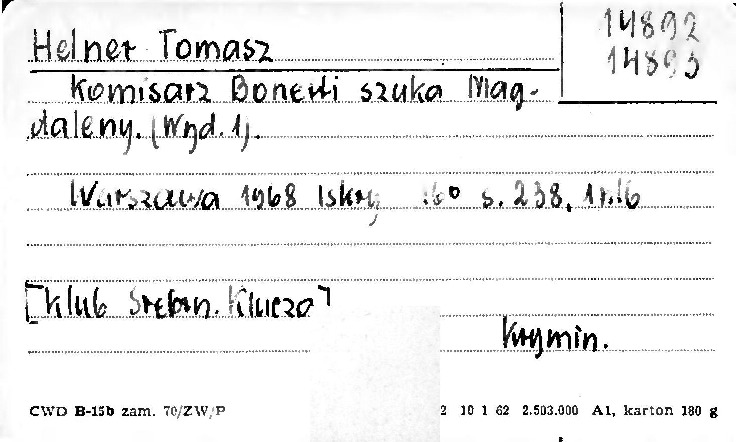 14892
14893
Helner Tomasz
Komisarz Bonetti szuka Mag-
daleny. (Wyd. 1).
Warszawa 1968 Iskry 16° s. 238, 1 nlb
[Klub Srebrn. Klucza]
Krymin.
CWD B-15b zam. 70/ZW/P 2 10 1 62 2.503.000 A1, karton 180 g